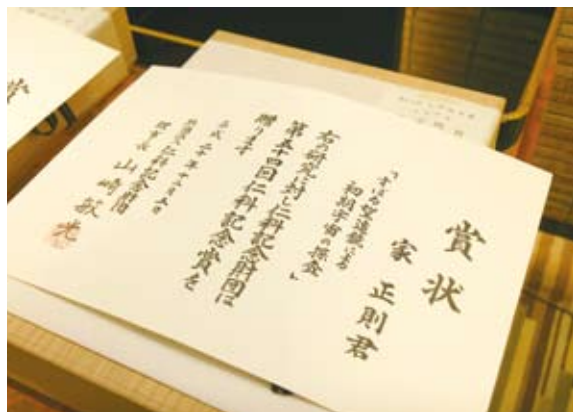 賞状
家 正則君
「すばる望遠鏡による
初期宇宙の探査」
右の研究に対し仁科記念財団は
第五十四回仁科記念賞を
贈ります
平成二十年十二月五日
財団法人仁科記念財団
理事長 山崎敏光
賞